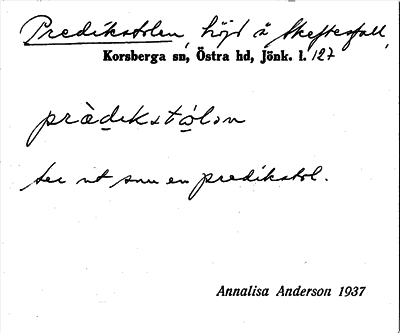 Predikstolen, höjd å Skeftesfall,
Korsberga sn, Östra hd, Jönk. l. 127
prædikstol_ən
ser ut som en predikstol.
Annalisa Anderson 1937